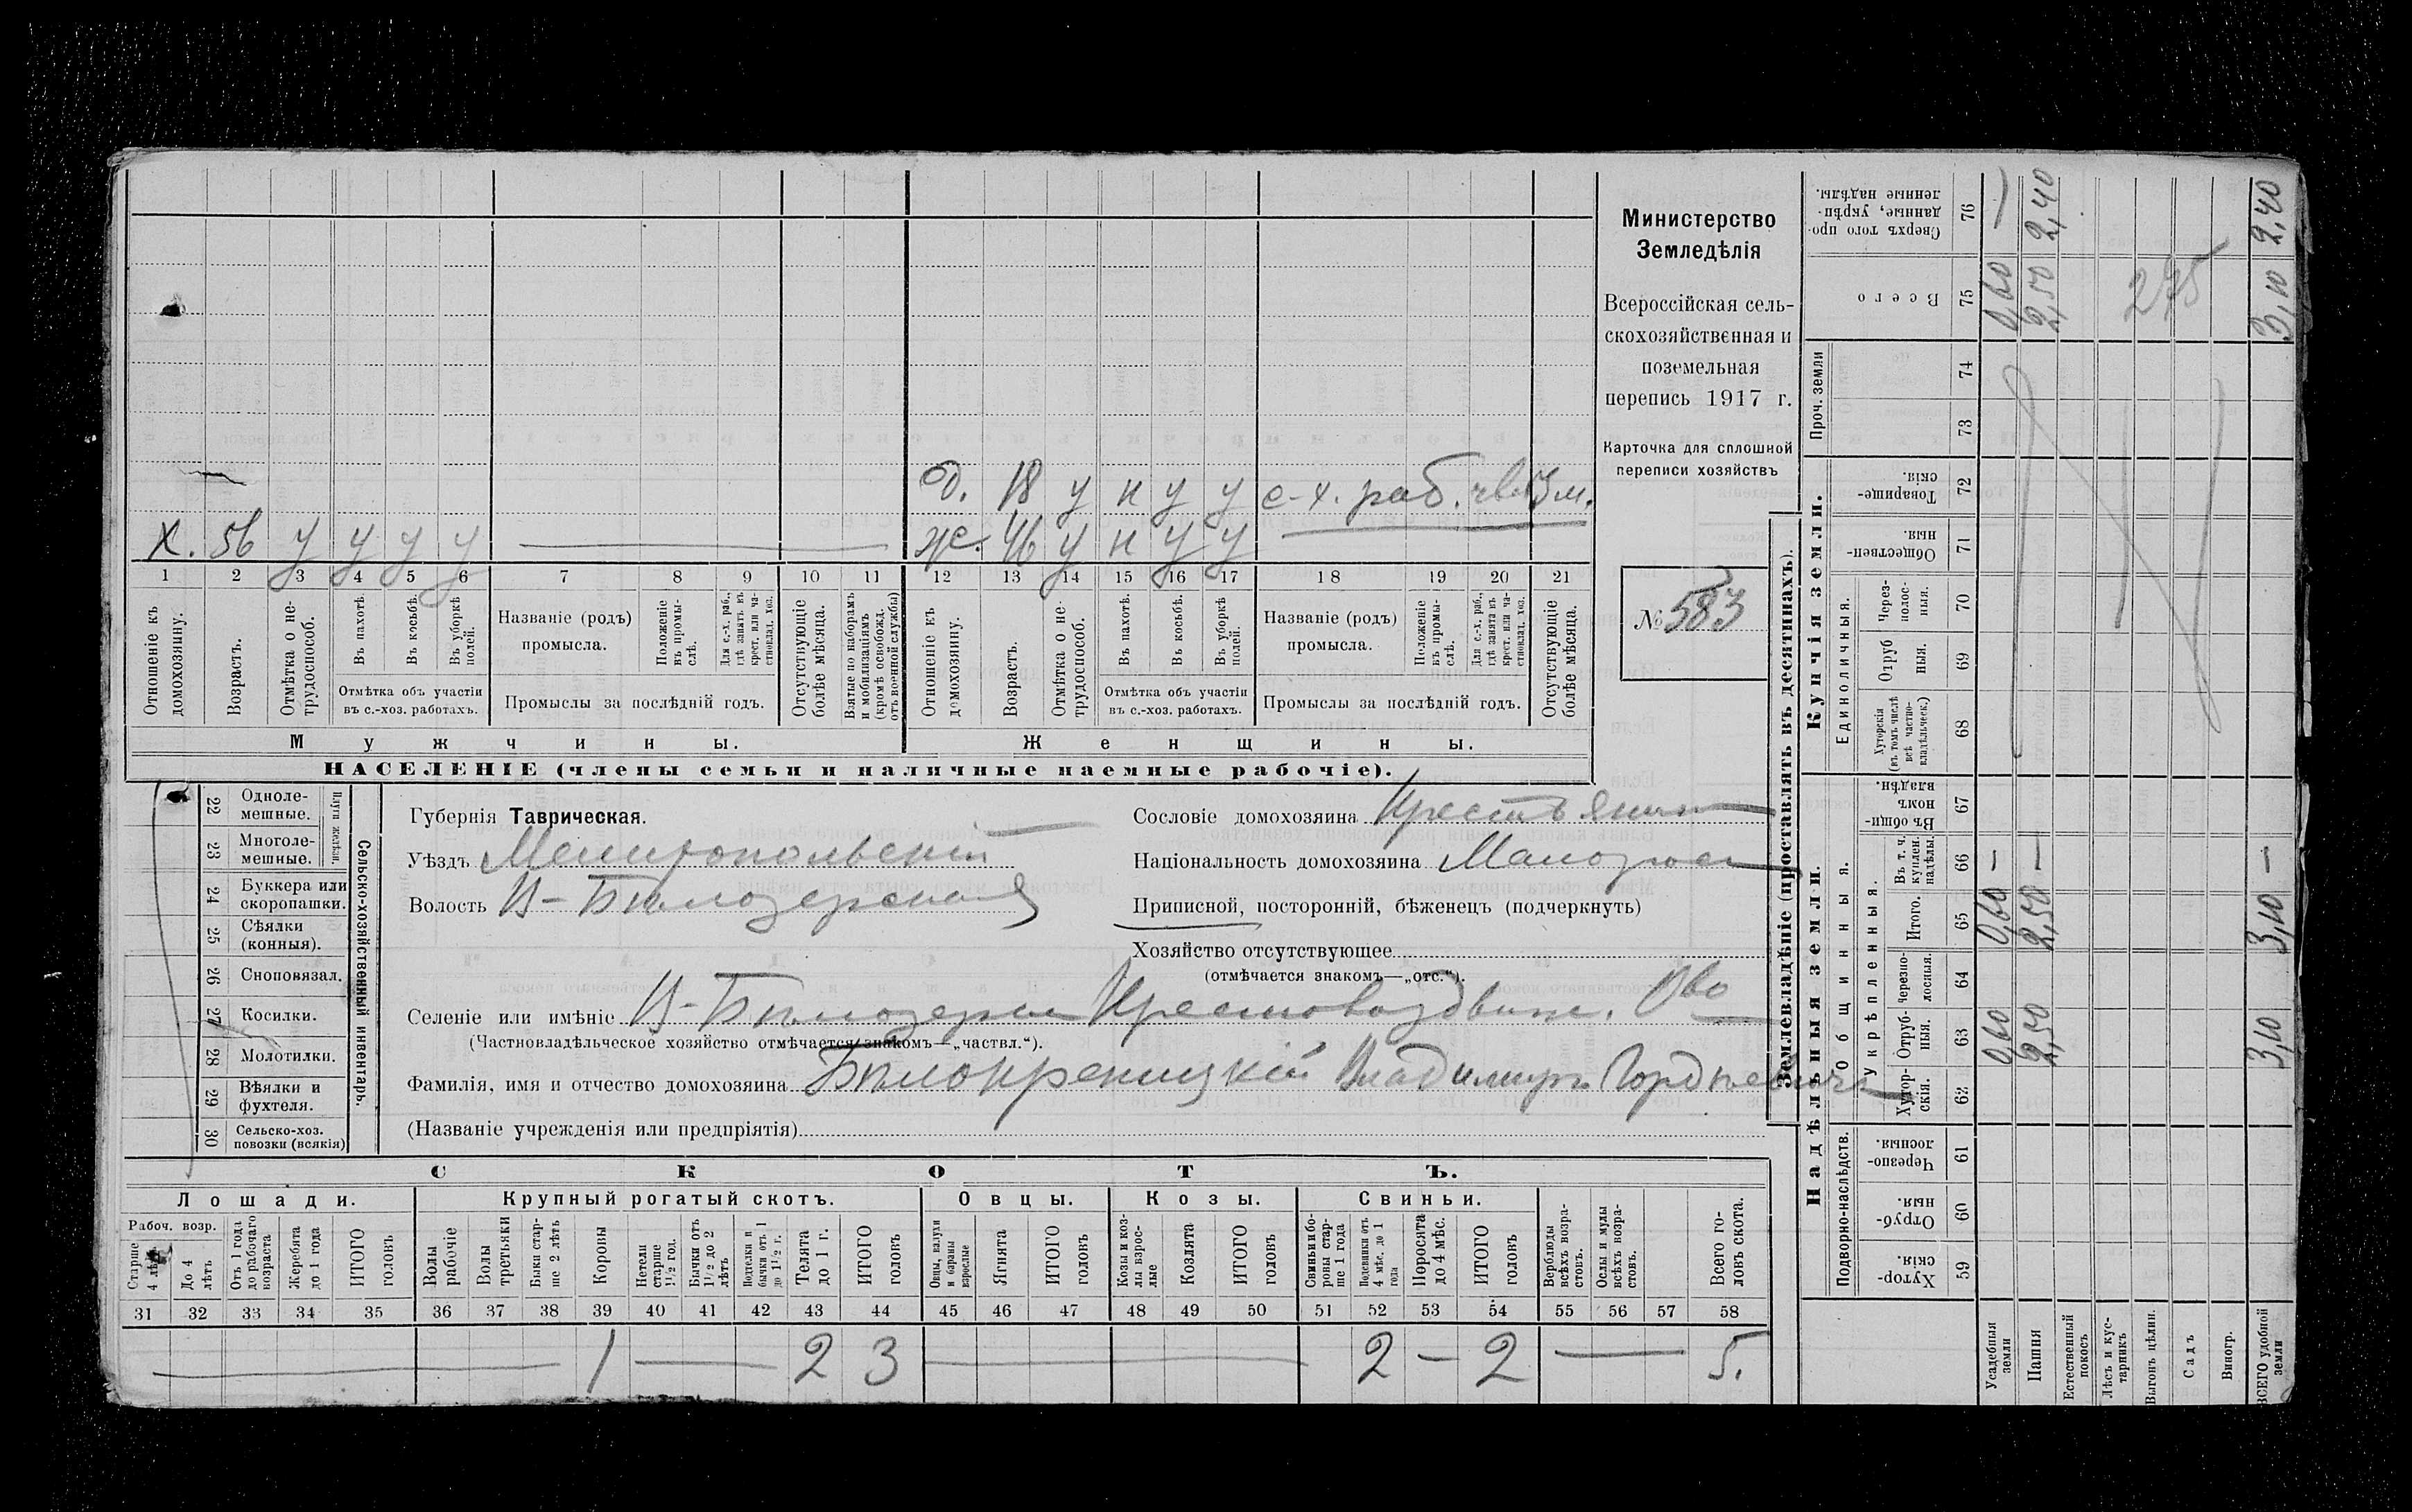 Министерство
Земледѣлія
Всероссійская сель-
скохозяйственная и
поземельная
перепись 1917 г.
Карточка для сплошной
переписи хозяйствъ
№ 583
д. 18 у н у у с-х. раб. 3 м.
х. 56 у у у у ж. 46 у н у у
1 2 3 4 5 6 7 8 9 10 11 12 13 14 15 16 17 18 19 20 21
Отношеніе къ домохозяину.
Возрастъ.
Отмѣтка о не-трудоспособ.
Въ пахотѣ.
Въ косьбѣ.
Въ уборкѣ полей.
Отмѣтка объ участіи въ с.-хоз. работахъ.
Названіе (родъ) промысла.
Положеніе въ промы-слѣ.
Для с.-х. раб., гдѣ занятъ въ крест. или ча-стновлад. хоз.
Промыслы за послѣдній годъ.
Отсутствующіе болѣе мѣсяца.
Взятые по наборамъ и мобилизаціямъ (кромѣ освобожд. отъ военной службы)
Отношеніе къ домохозяину.
Возрастъ.
Отмѣтка о не-трудоспособ.
Въ пахотѣ.
Въ косьбѣ.
Въ уборкѣ полей.
Отмѣтка объ участіи въ с.-хоз. работахъ.
Названіе (родъ) промысла.
Положеніе въ промы-слѣ.
Для с.-х. раб., гдѣ занята въ крест. или ча-стновлад. хоз.
Промыслы за послѣдній годъ.
Отсутствующіе болѣе мѣсяца.
Мужчины.
Женщины.
НАСЕЛЕНІЕ (члены семьи и наличные наемные рабочіе).
Сельско-хозяйственный инвентарь.
22 Одноле-мешные.
23 Многоле-мешные.
24 Буккера или скоропашки.
25 Сѣялки (конныя).
26 Сноповязал.
27 Косилки.
28 Молотилки.
29 Вѣялки и фухтеля.
30 Сельско-хоз. повозки (всякія)
Губернія Таврическая.
Уѣздъ Мелитопольскій
Волость В-Бѣлозерская
Сословіе домохозяина Крестьянин
Національность домохозяина Малорос
Приписной, посторонній, бѣженецъ (подчеркнуть)
Хозяйство отсутствующее
(отмѣчается знакомъ—„отс.“).
Селеніе или имѣніе В-Бѣлозерка Крестовоздвиж. О-во
(Частновладѣльческое хозяйство отмѣчается знакомъ—„частвл.“).
Фамилія, имя и отчество домохозяина Бѣлокреницкій Владимиръ Гордѣевичъ
(Названіе учрежденія или предпріятія)
СКОТЪ.
Лошади. Крупный рогатый скотъ. Овцы. Козы. Свиньи.
Рабоч. возр.
Старше 4 лѣтъ
До 4 лѣтъ
Отъ 1 года до рабочаго возраста
Жеребята до 1 года
ИТОГО головъ
Волы рабочіе
Волы третьяки
Быки стар-ше 2 лѣтъ
Коровы
Нетели старше 1½ год.
Бычки отъ 1½ до 2 лѣтъ
Подтелки и бычки отъ 1 до 1½ г.
Телята до 1 г.
ИТОГО головъ
Овцы, валухи и бараны взрослые
Ягнята
ИТОГО головъ
Козы и коз-лы взрос-лые
Козлята
ИТОГО головъ
Свиньи и бо-ровы стар-ше 1 года
Подсвинки отъ 4 мѣс. до 1 года
Поросята до 4 мѣс.
ИТОГО головъ
Верблюды всѣхъ возра-стовъ.
Ослы и мулы всѣхъ возра-стовъ.
Всего го-ловъ скота.
31 32 33 34 35 36 37 38 39 40 41 42 43 44 45 46 47 48 49 50 51 52 53 54 55 56 57 58
1 — 2 3 — 2 — 2 — 5.
Землевладѣніе (проставлять въ десятинахъ).
Надѣльныя земли. Купчія земли.
Подворно-наслѣдств.
Общинныя.
Укрѣпленныя.
Единоличныя.
Проч. земли
59 Хутор-скія.
60 Отруб-ныя.
61 Черезпо-лосныя.
62 Хутор-скія.
63 Отруб-ныя.
64 Черезпо-лосныя.
65 Итого.
66 Въ т. ч. куплен. надѣлы.
67 Въ общи-номъ владѣн.
68 Хуторскія (въ томъ числѣ всѣ частно-владѣльческ.)
69 Отруб ныя.
70 Через-полос-ныя.
71 Обществен-ныя.
72 Товарище-скія.
73
74
75 Всего
76 Сверхъ того про-данные, укрѣп-ленные надѣлы.
Усадебныя земли 0,60 0,60 — 0,60
Пашня 2,50 2,50 — 2,50 2,40
Естественный покосъ
Лѣсъ и кус-тарникъ
Выгонъ цѣлин.
Садъ
Виногр.
ВСЕГО удобной земли 3,10 3,10 — 3,10 2,40
275